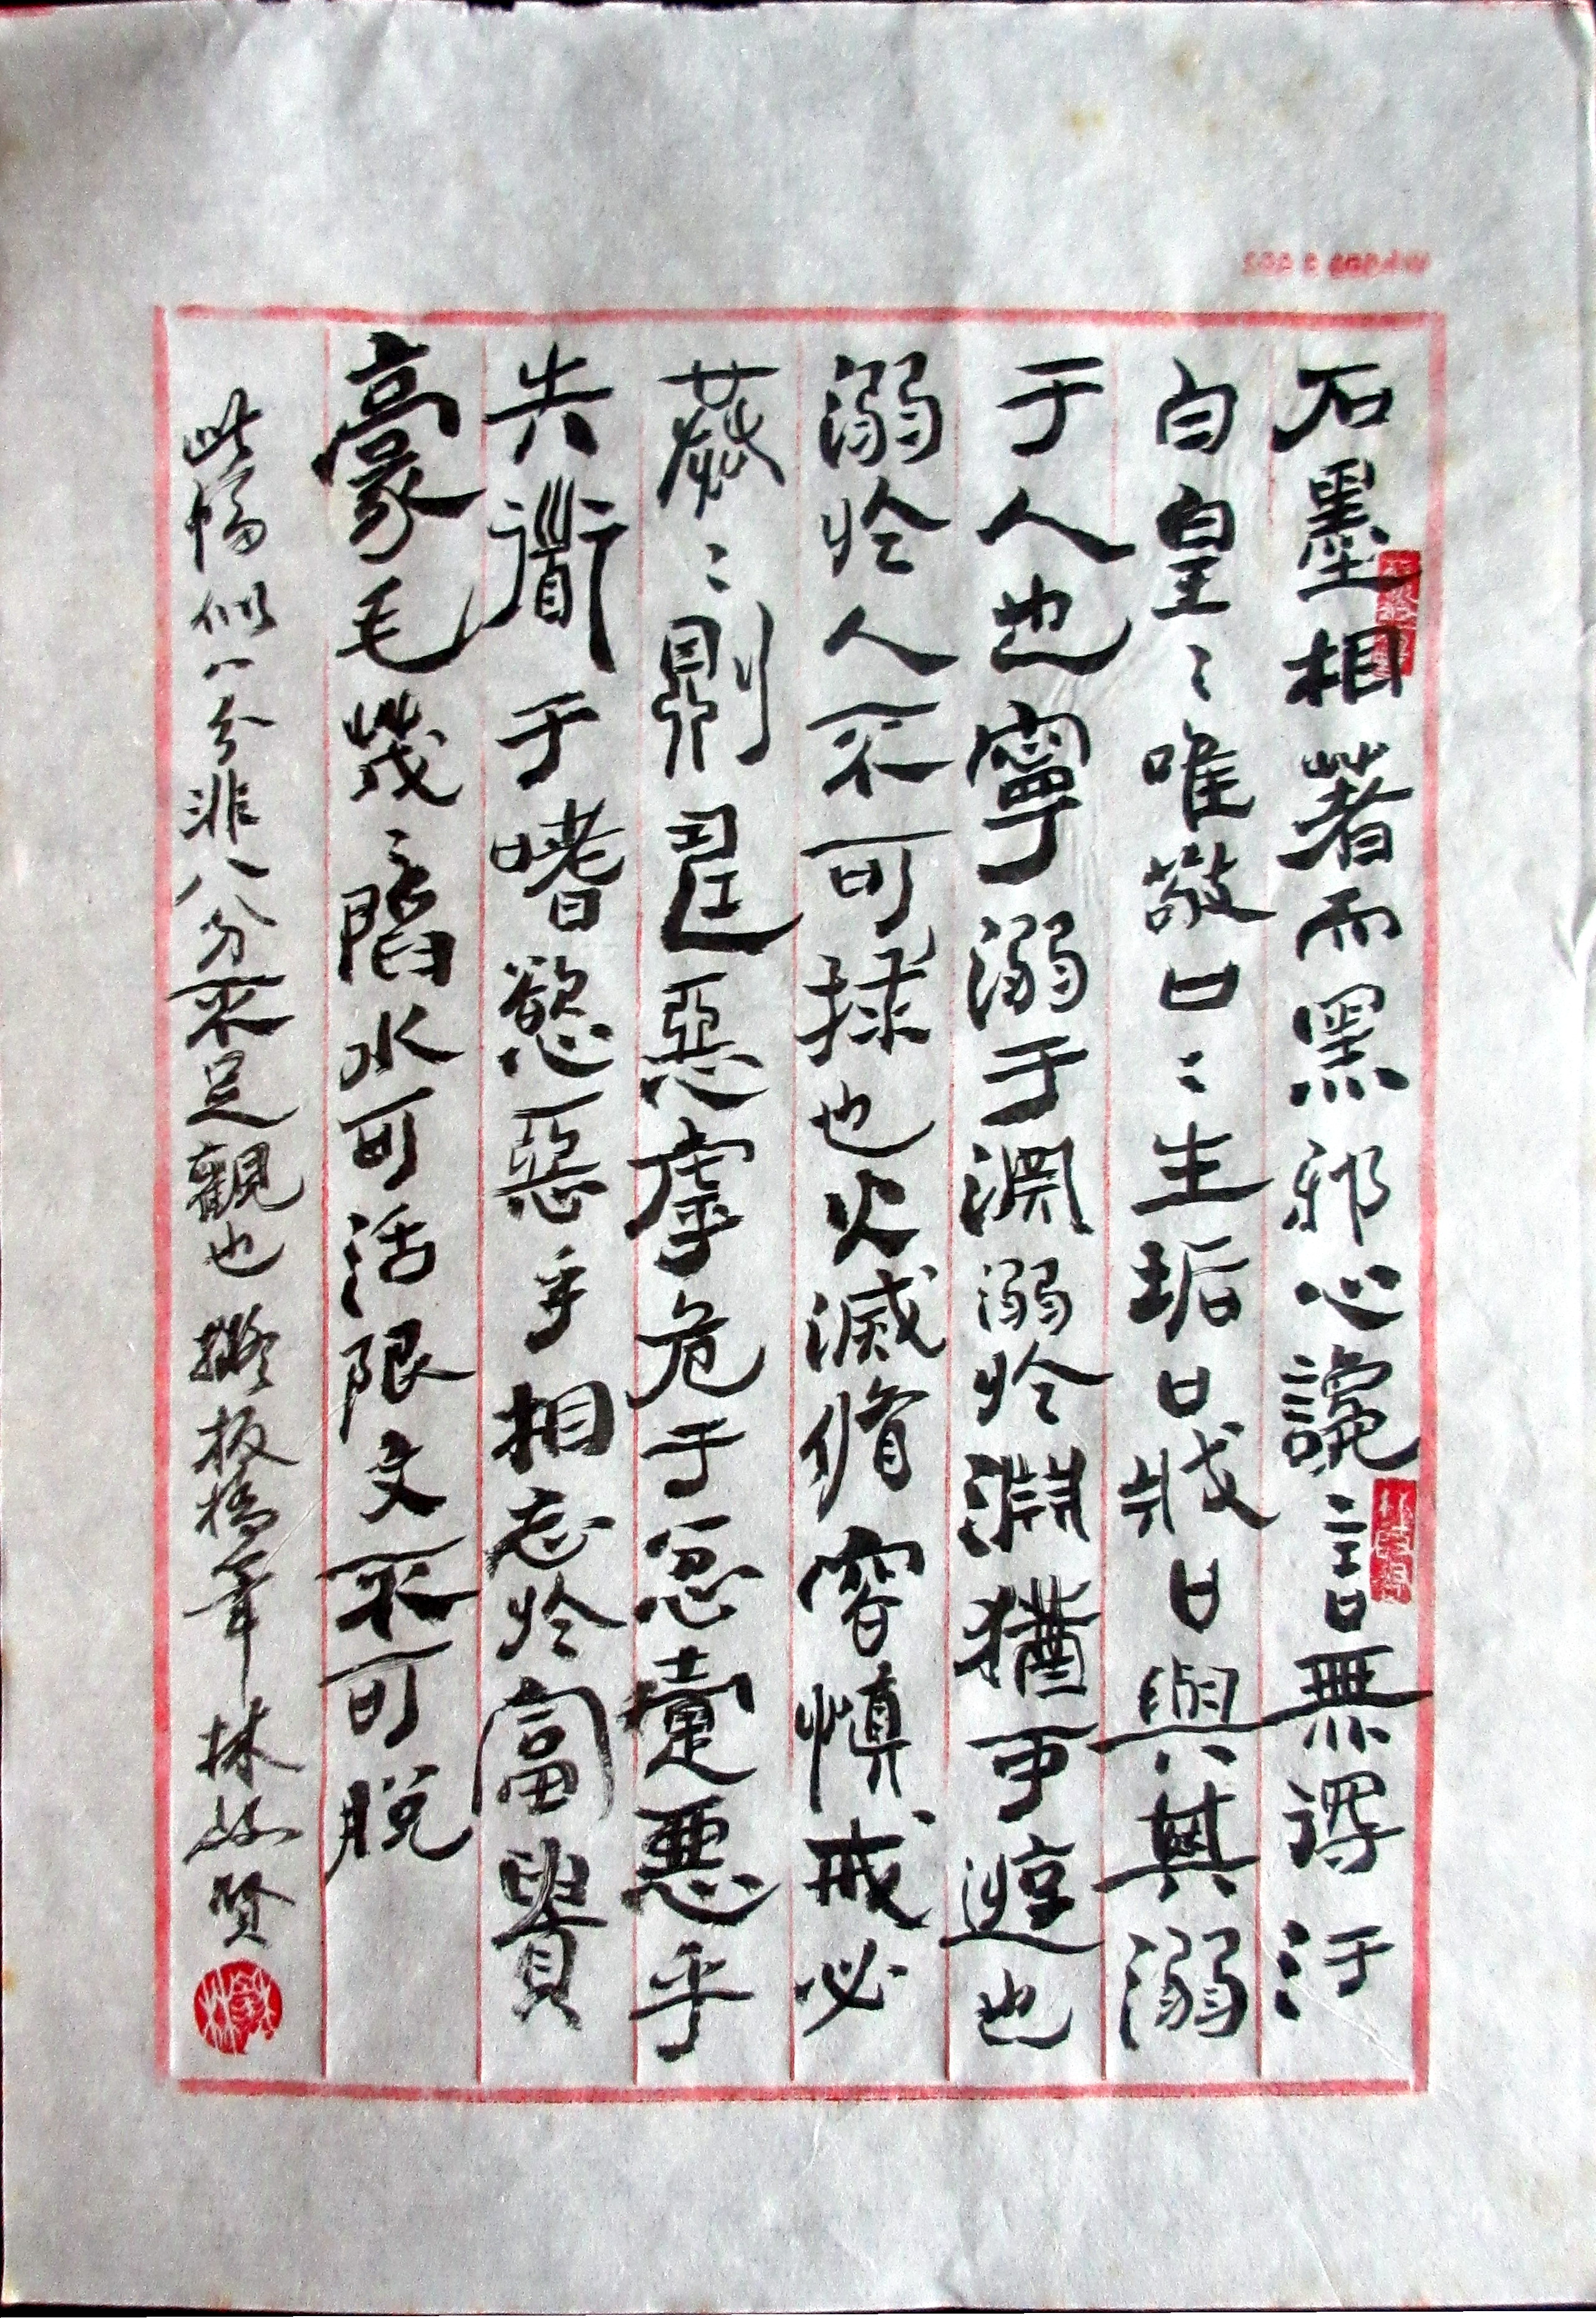 石墨相著而黑邪心讒言無得汙
白皇〻唯敬口〻生垢口戕口與其溺
于人也寧溺于淵溺於淵猶可遊也
溺於人不可捄也火滅脩容慎戒必
恭〻則壽惡虖危于忿疐惡乎
失道于嗜慾惡乎相忘於富貴
豪毛茂〻陷水可活陷文不可脫
此幅似八分非八分不足觀也 擬板橋筆 林 賢